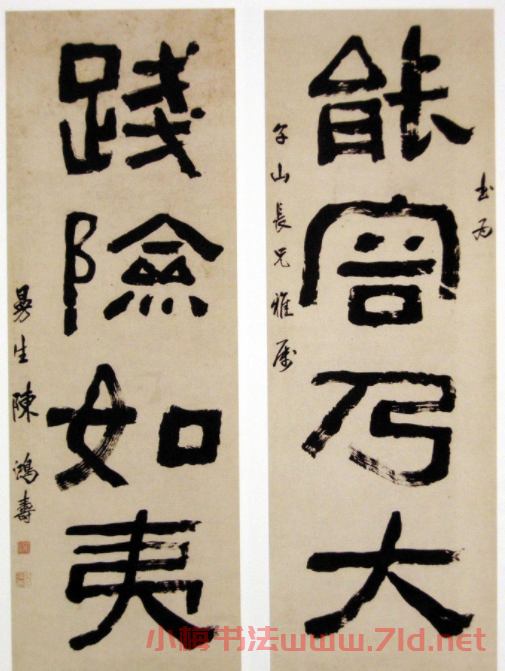 能容乃大
書為
子山長兄雅屬
踐險如夷
曼生陳鴻壽
书法www.7ld.net